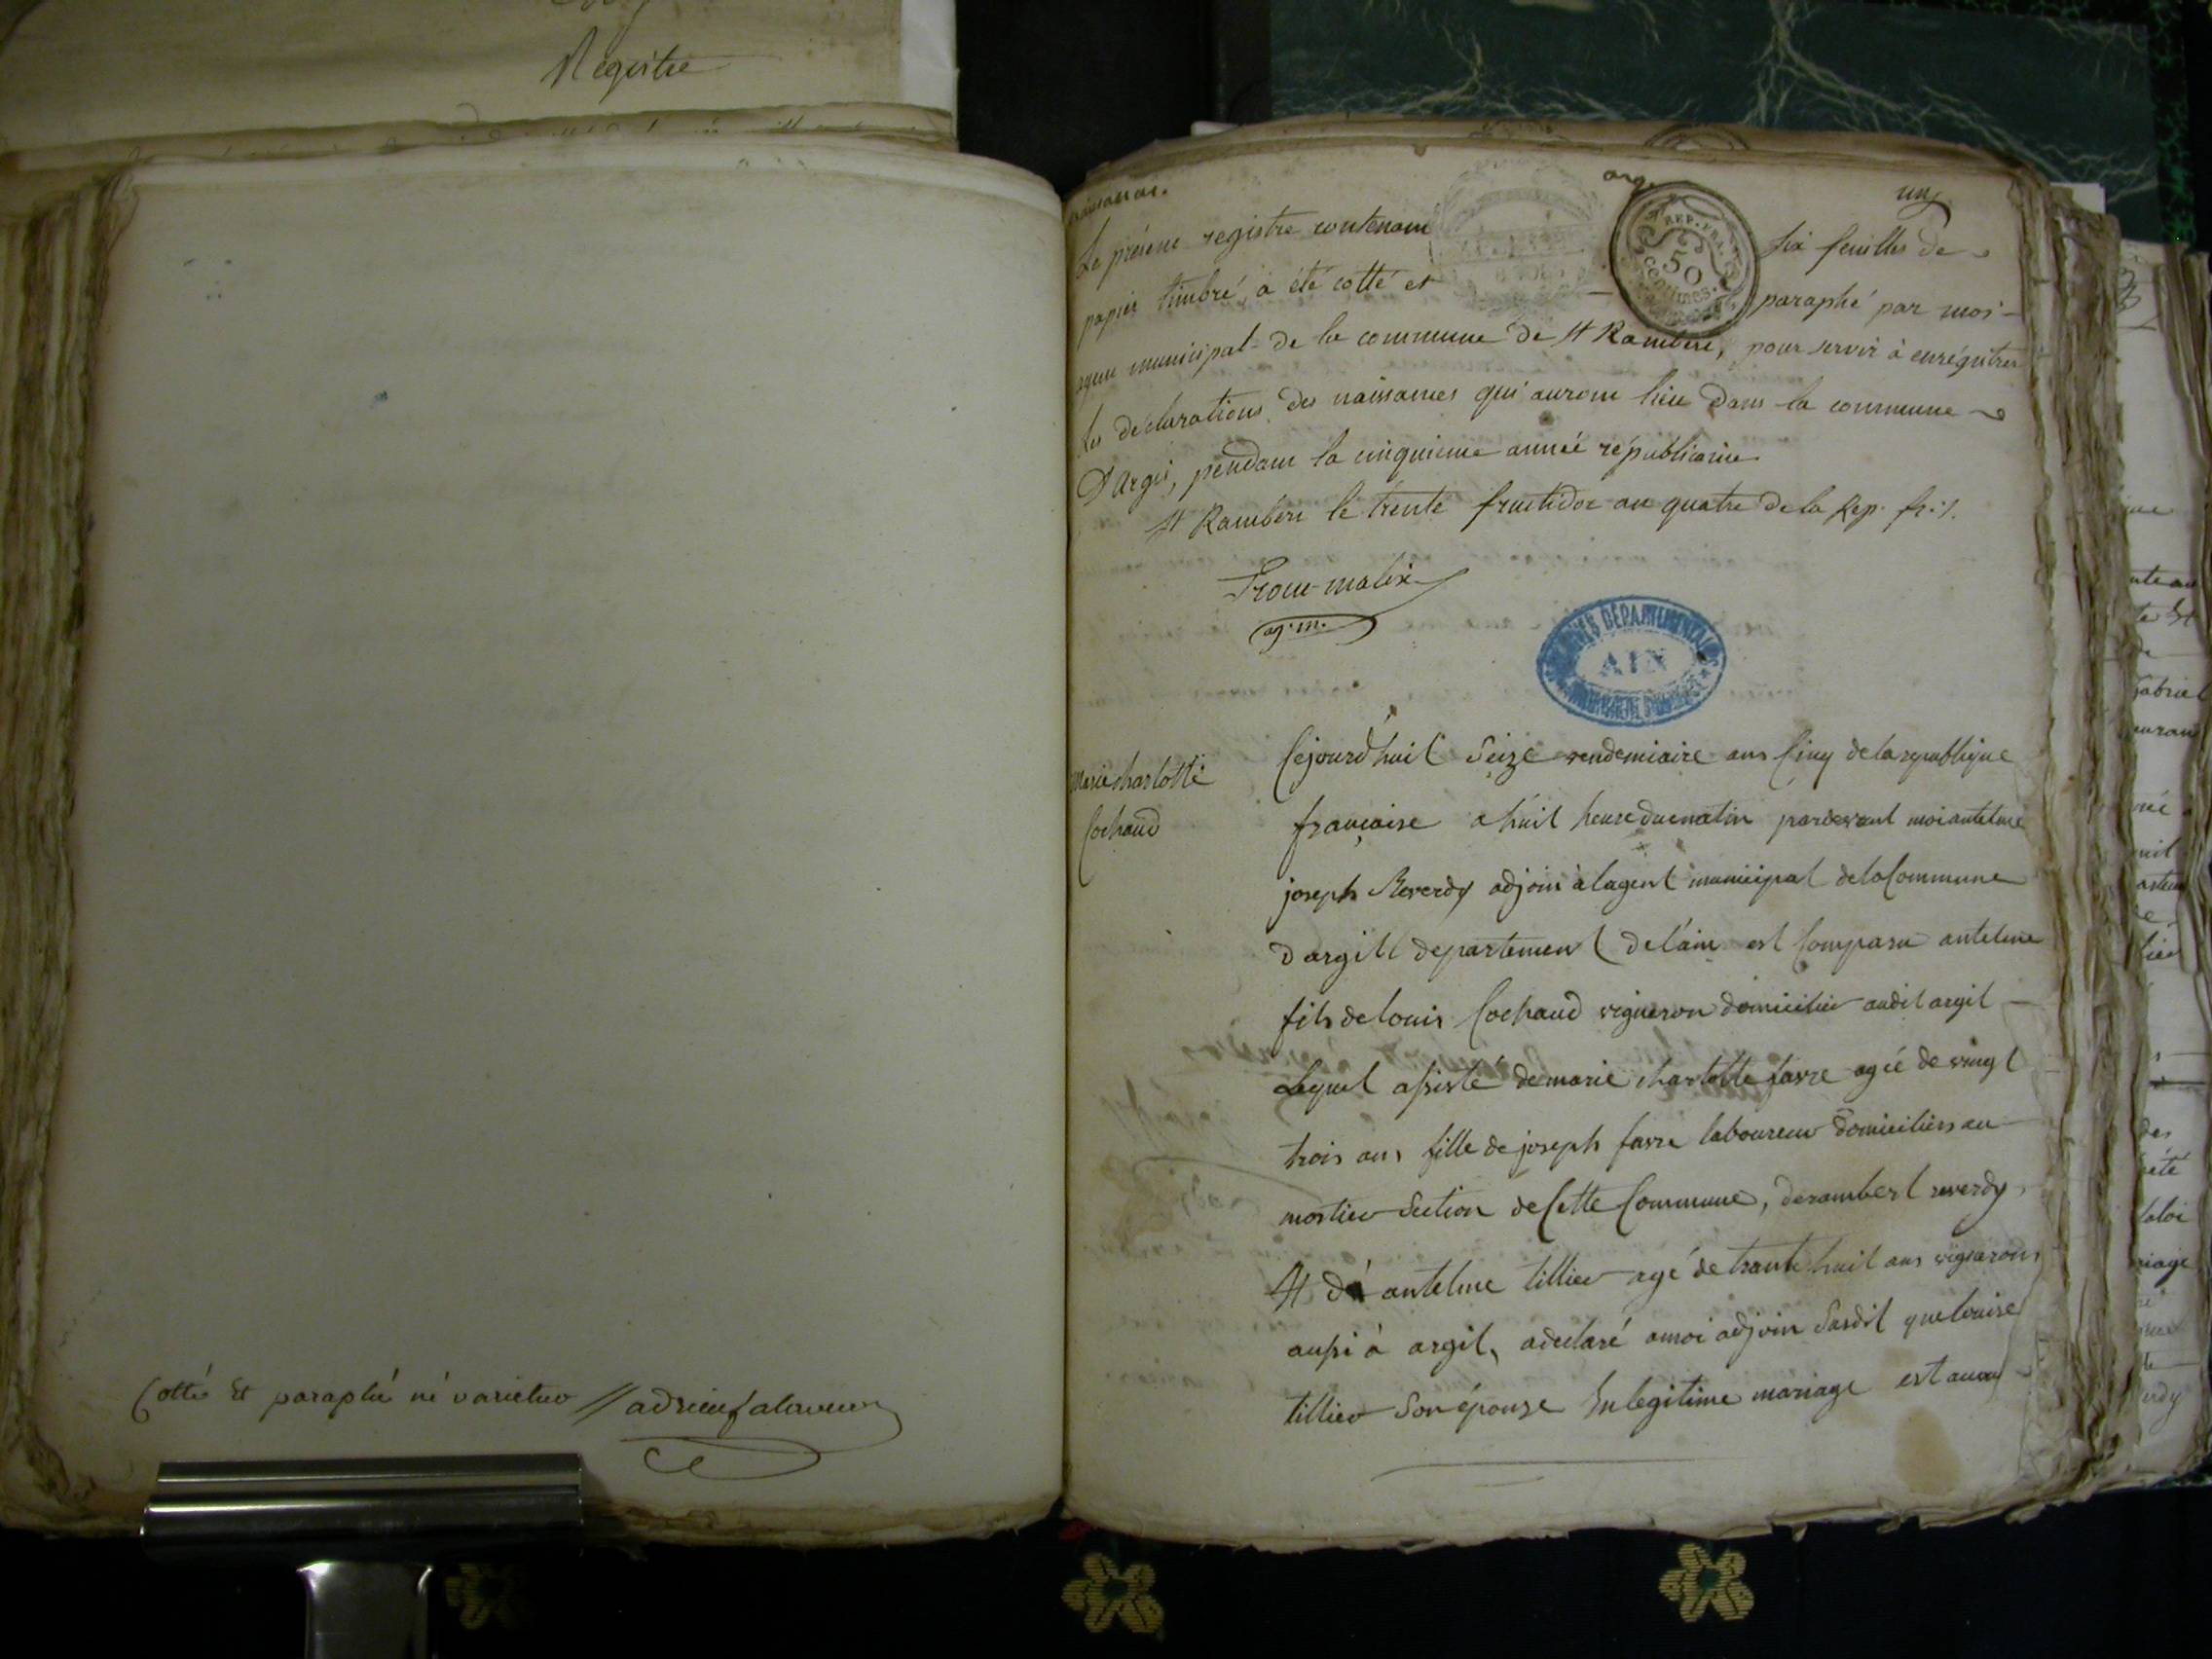 Registre
Cotté et paraphé né varietur
naissances.
un
Le présent registre contenant six feuilles de
papier timbré, a été cotté et paraphé par moi
agent municipal de la commune de St Rambert, pour servir à enrégitrer
les déclarations des naissances qui auront lieu dans la commune
D'Argis, pendant la cinquieme année républicaine
St Rambert le trente fructidor an quatre de la Rep. fr.
ag. m.
REP. FRA.
50
centimes.
ARCHIVES DÉPARTEMENTALES
AIN
Marie charlotte
Cochaud
Cejourd'huit Seize vendemiaire ans Cinq de la republique
françaire a huit heure du matin pardevant moi antelme
joseph Reverdy adjoin à lagent municipal de la Commune
dargill departement de l'ain est Comparu antelme
fils de louis Cochaud vigneron domicilier audit argil
Lequel assisté de marie charlotte favre agée de vingt
trois ans fille de joseph favre laboureur domiciliers au
mortier Section de Cette Commune, de rambert reverdy
Et dé antelme tillier agé de trante huit ans vignarons
aussi à argil, a declaré a moi adjoin Susdit que louise
tillier Son épouze En legitime mariage est